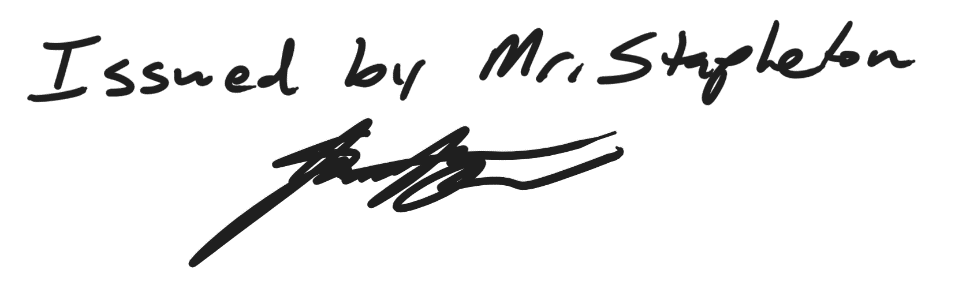 Issued by Mr. Stapleton